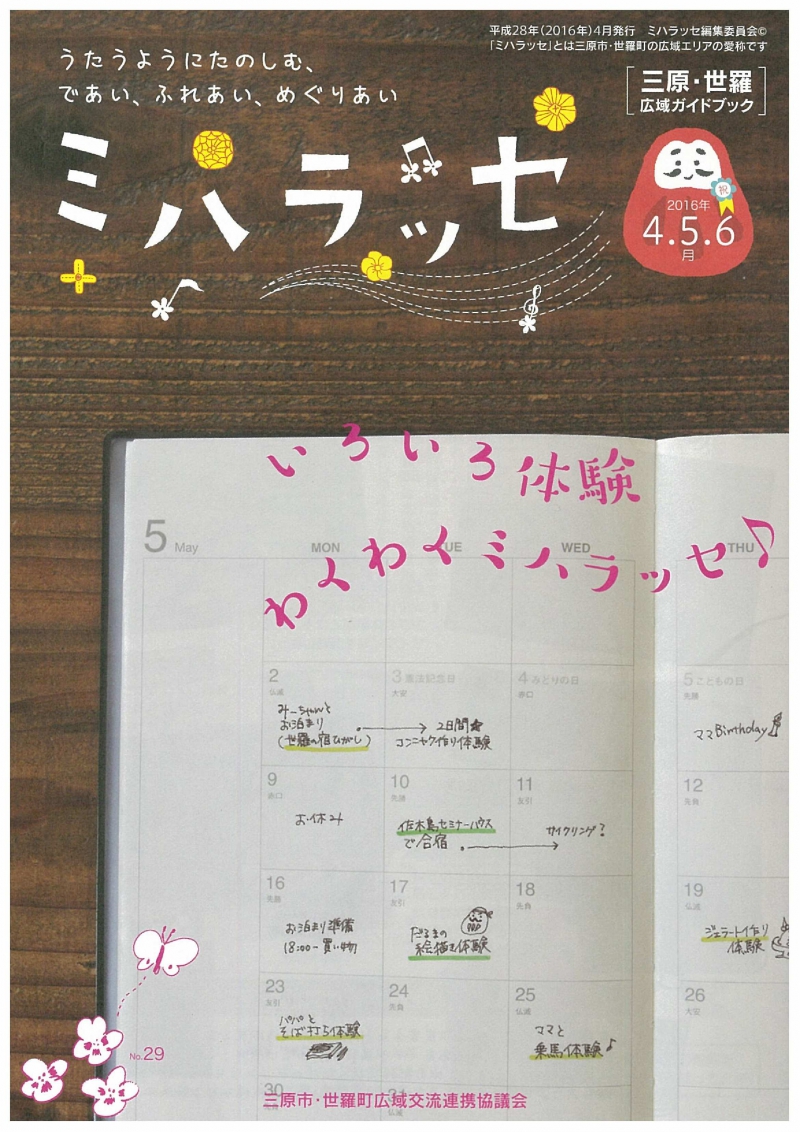 平成28年(2016年)4月発行 ミハラッセ編集委員会©
「ミハラッセ」とは三原市・世羅町の広域エリアの愛称です
うたうようにたのしむ、
であい、ふれあい、めぐりあい
三原・世羅
広域ガイドブック
ミハラッセ
祝
2016年
4.5.6
月
いろいろ体験
わくわくミハラッセ♪
5 May
MON TUE WED THU
2 仏滅
みーちゃんと
お泊まり
(世羅の宿ひがし)
3 憲法記念日
大安
2日間★
コンニャク作り体験
4 みどりの日
赤口
5 こどもの日
先勝
ママ Birthday
9 赤口
お休み
10 先勝
佐木島セミナーハウス
で合宿
11 友引
サイクリング?
12 先負
16 先勝
お泊まり準備
18:00〜買い物
17 友引
だるまの
絵描き体験
18 先負
19 仏滅
ジェラート作り
体験
23 友引
パパと
そば打ち体験
24 先負
25 仏滅
ママと
乗馬体験♪
26 大安
30
31
仏滅
No.29
三原市・世羅町広域交流連携協議会